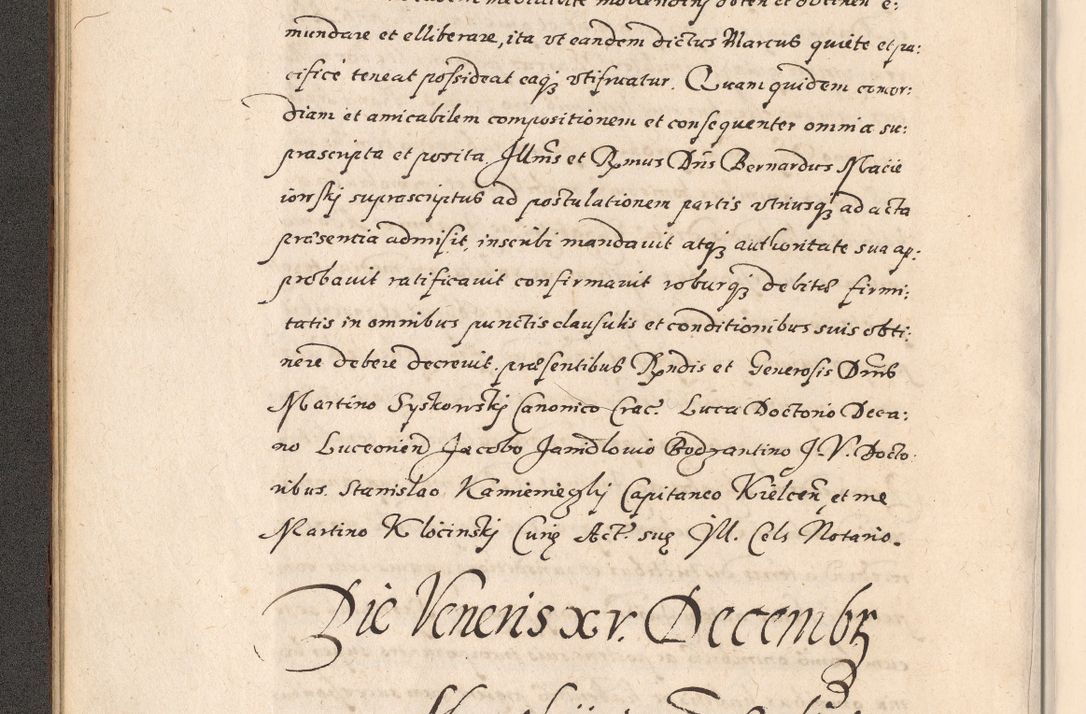 mundare et elliberare, ita vt eandem dictus Marcus quiete et pa:
cifice teneat possideat eaq; vtifruatur. Quam quidem concor:
diam et amicabilem compositionem et consequenter omnia su:
prascripta et posita. Illm̃s et Rx̃mus Dñs Bernardus Macie
iowskj suprascriptus ad postulationem partis vtriusq; ad acta
præsentia admisit, inscribi mandauit atq; authoritate sua ap:
probauit ratificauit confirmauit roburq; debitæ firmi:
tatis in omnibus punctis clausulis et conditionibus suis obti:
nere debere decreuit. præsentibus Rx̃ndis et Generosis Dm̃is
Martino Syskowskj Canonico Crac. Lucca Doctorio Deca:
no Luceorien̄ Jacobo Janidlouio Bodzantino J. V. Docto
ribus. Stanislao Kamienieczkj Capitaneo Kielcen̄, et me
Martino Klocinskj Curię Act. suę Ill. Cels Notario.
Die Veneris xv. Decembr